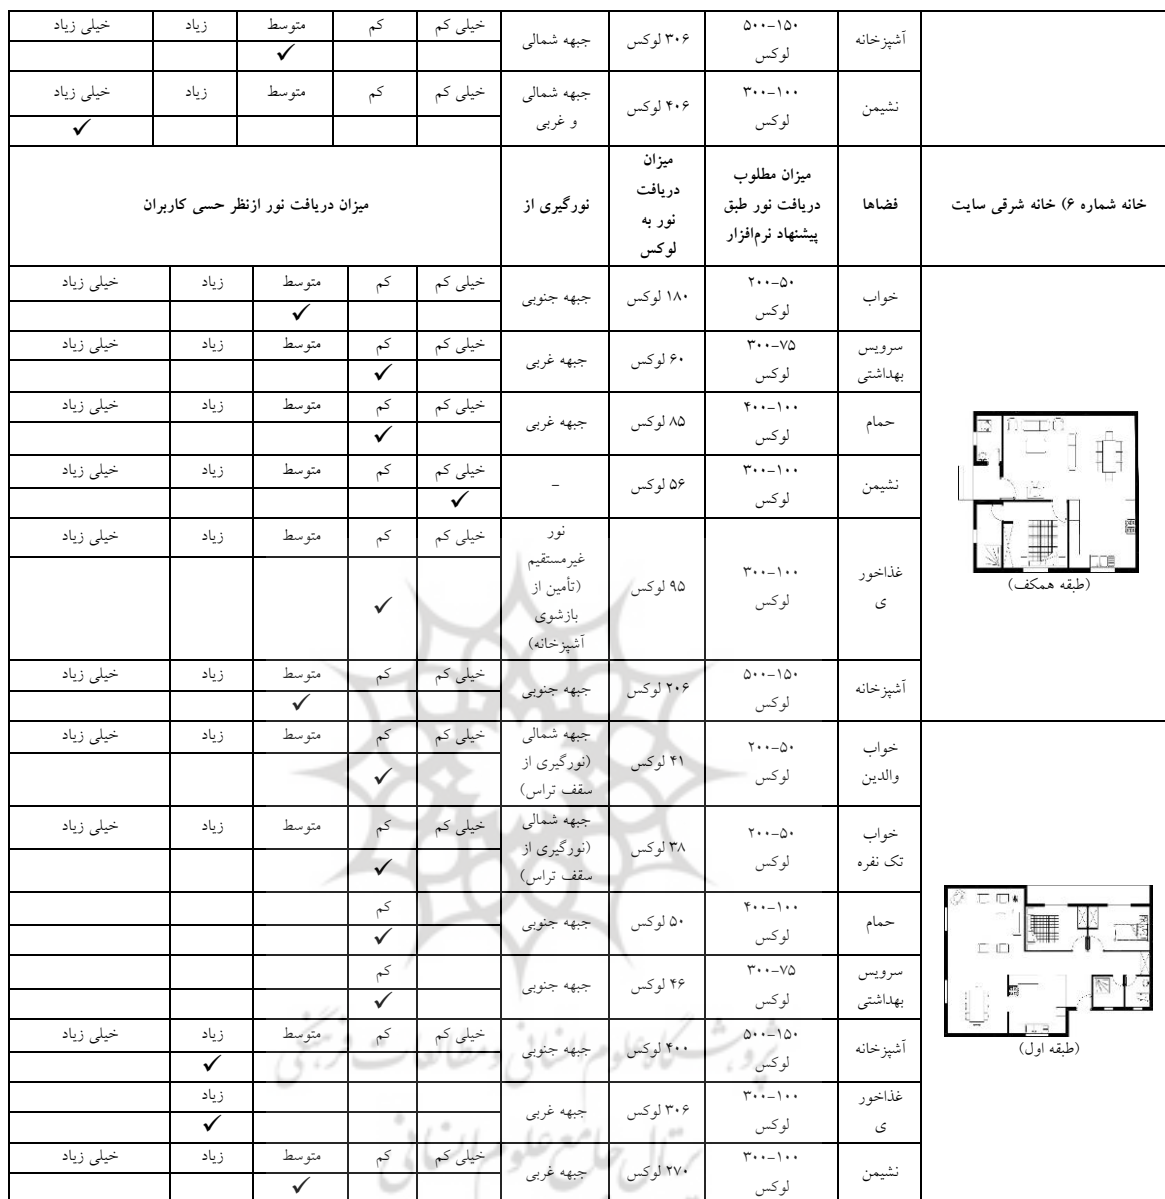 آشپزخانه
۱۵۰-۵۰۰
لوکس
۳۰۶ لوکس
جبهه شمالی
خیلی کم
کم
متوسط
زیاد
خیلی زیاد
✓
نشیمن
۱۰۰-۳۰۰
لوکس
۴۰۶ لوکس
جبهه شمالی
و غربی
خیلی کم
کم
متوسط
زیاد
خیلی زیاد
✓
خانه شماره ۶) خانه شرقی سایت
فضاها
میزان مطلوب
دریافت نور طبق
پیشنهاد نرم‌افزار
میزان
دریافت
نور به
لوکس
نورگیری از
میزان دریافت نور ازنظر حسی کاربران
خواب
۵۰-۲۰۰
لوکس
۱۸۰ لوکس
جبهه جنوبی
خیلی کم
کم
متوسط
زیاد
خیلی زیاد
✓
سرویس
بهداشتی
۷۵-۳۰۰
لوکس
۶۰ لوکس
جبهه غربی
خیلی کم
کم
متوسط
زیاد
خیلی زیاد
✓
حمام
۱۰۰-۴۰۰
لوکس
۸۵ لوکس
جبهه غربی
خیلی کم
کم
متوسط
زیاد
خیلی زیاد
✓
نشیمن
۱۰۰-۳۰۰
لوکس
۵۶ لوکس
-
خیلی کم
کم
متوسط
زیاد
خیلی زیاد
✓
غذاخور
ی
۱۰۰-۳۰۰
لوکس
۹۵ لوکس
نور
غیرمستقیم
(تأمین از
بازشوی
آشپزخانه)
خیلی کم
کم
متوسط
زیاد
خیلی زیاد
✓
آشپزخانه
۱۵۰-۵۰۰
لوکس
۲۰۶ لوکس
جبهه جنوبی
خیلی کم
کم
متوسط
زیاد
خیلی زیاد
✓
(طبقه همکف)
خواب
والدین
۵۰-۲۰۰
لوکس
۴۱ لوکس
جبهه شمالی
(نورگیری از
سقف تراس)
خیلی کم
کم
متوسط
زیاد
خیلی زیاد
✓
خواب
تک نفره
۵۰-۲۰۰
لوکس
۳۸ لوکس
جبهه شمالی
(نورگیری از
سقف تراس)
خیلی کم
کم
متوسط
زیاد
خیلی زیاد
✓
حمام
۱۰۰-۴۰۰
لوکس
۵۰ لوکس
جبهه جنوبی
کم
✓
سرویس
بهداشتی
۷۵-۳۰۰
لوکس
۴۶ لوکس
جبهه جنوبی
کم
✓
آشپزخانه
۱۵۰-۵۰۰
لوکس
۴۰۰ لوکس
جبهه جنوبی
خیلی کم
کم
متوسط
زیاد
خیلی زیاد
✓
غذاخور
ی
۱۰۰-۳۰۰
لوکس
۳۰۶ لوکس
جبهه غربی
زیاد
✓
نشیمن
۱۰۰-۳۰۰
لوکس
۲۷۰ لوکس
جبهه غربی
خیلی کم
کم
متوسط
زیاد
خیلی زیاد
✓
(طبقه اول)
پژوهشگاه علوم انسانی و مطالعات فرهنگی
پرتال جامع علوم انسانی